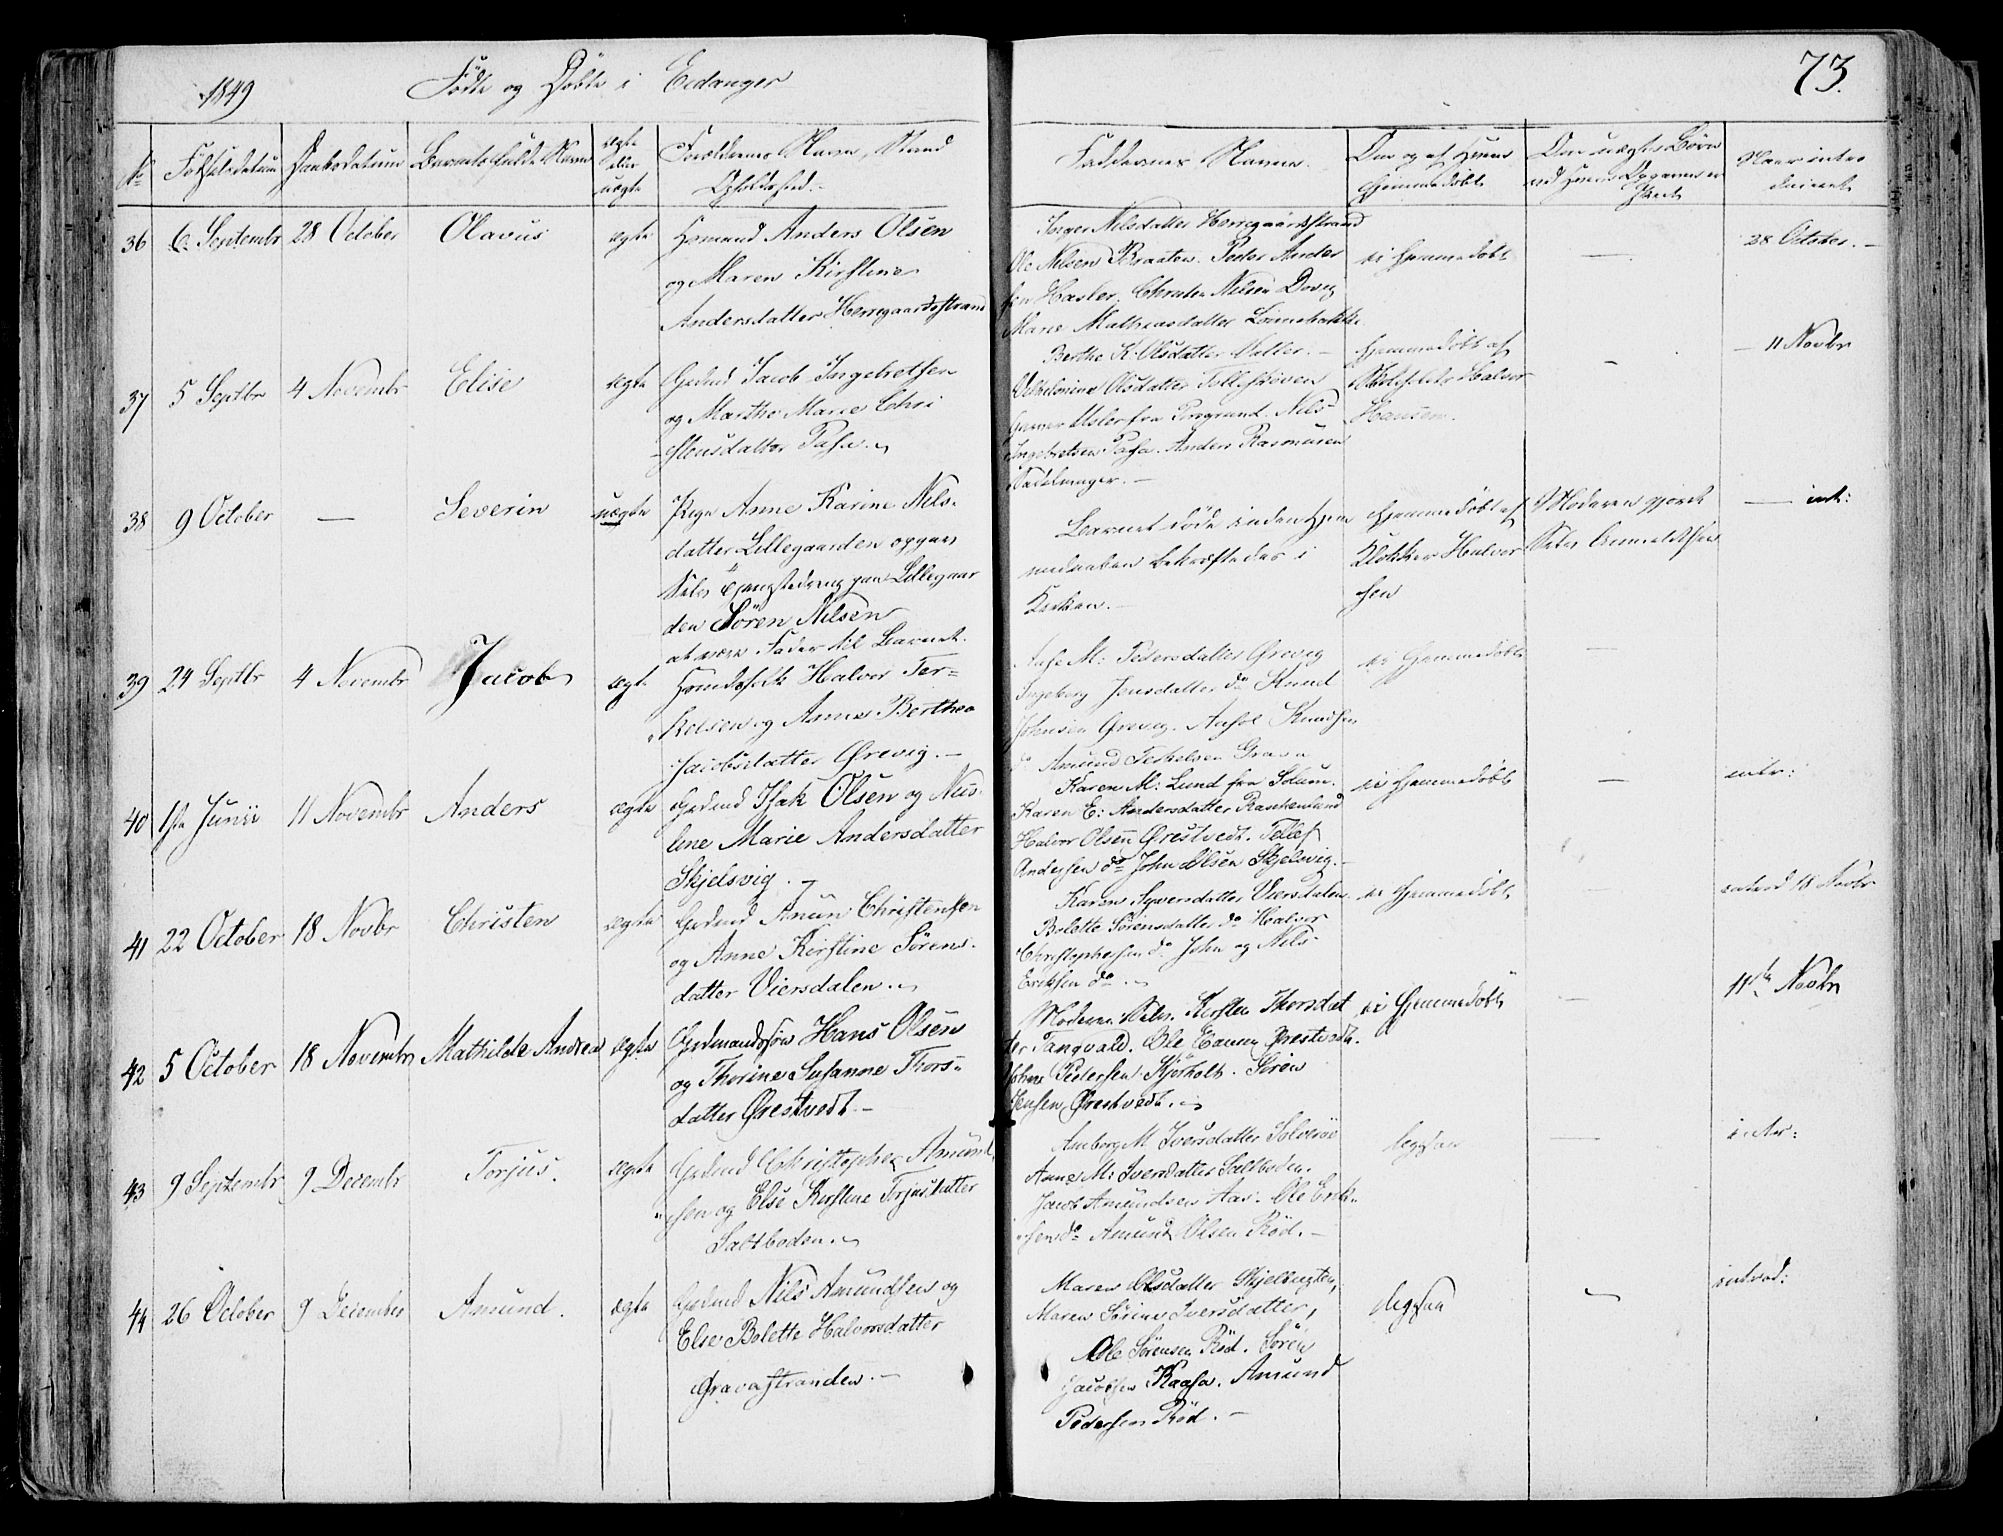 1849 Födte og Döbte i Eidanger
73.
No Födselsdatum Daabsdatum Barnets fulde Navn ægte eller uægte Forældrenes Navn, Stand Opholdssted.
Faddernes Navne. Om og af Hvem hjemmedöbt Om uægte Börn ved Hvem Opgaven er skeet Naar introduceret
36 6. Septembr 28 October Olavus ægte Huusmand Anders Olsen
og Maren Kirstine
Andersdatter Herregaardsstrand
Inger Nilsdatter Herregaardsstrand
Ole Nilsen Braaten. Peder Ander
sen Hasler. Christen Nilsen
Marie Mathiasdatter
Berthe K: Olsdatter Valler. –
ei hjemmedöbt
—
28 October. –
37 5 Septbr 4 Novembr Elise ægte Gaardmd Jacob Ingebretsen
og Marthe Marie Chri
stensdatter Pasa.
Vilhelmine Olsdatter
fra Porsgrund. Nils
Ingebretsen Pasa. Anders Rasmusen
hjemmedöbt af
Skoleholder Halvor
Hansen.
–
– 11 Novbr
38 9 October — Severin uægte Pige Anne Karine Nils-
datter Lillegaarden opgav
Selv paa Lillegaar
den Sören Nilsen
at være Fader til Barnet.
Barnet döde inden Hjem
medaaben bekræftedes i
Kirken. –
hjemmedöbt af
Klokker Halvor
sen
Moderen gjorde
Selv Anmeldelsen
— int:
39 24 Septbr 4 Novembr Jacob ægte Halvor Ter-
kelsen og Anne Berthea
Jacobsdatter Ørevig. –
Aase M: Pedersdatter Ørevig
Ingeborg Jensdatter do Knud
Johnsen Ørevig. Knudsen
do Amund Terkelsen Grava
ei hjemmedöbt
—
40 1ste Junii 11 Novembr Anders ægte Gaardmd Isak Olsen og
Marie Andersdatter
Skjelsvig. –
Karen M: Lund fra Solum.
Karen E: Andersdatter
Halvor Olsen Ørestvedt. Tellef
Andersen do John Olsen Skjelsvig. –
ei hjemmedöbt
—
intr:
41 22 October 18 Novbr Christen ægte Gaardmd Anun Christensen
og Anne Kirstine Sörens-
datter Viersdalen.
Karen Syversdatter Viersdalen.
Bolette Sörensdatter do Halvor
Christophersen do John og Nils
Eriksen do. –
ei hjemmedöbt
—
introd 18 Novbr
42 5 October 18 Novembr Mathilde Andrea ægte Gaardmandssön Hans Olsen
og Thorine Susanne Thors-
datter Ørestvedt –
Moderen Selv. Kirsten Thorsdat
ter Tangvald. Ole Ørestvedt.
Johan Pedersen Kjørholt. Sören
Jensen Ørestvedt.
ei hjemmedöbt
—
11te Novbr
43 9 Septembr 9 Decembr Torjus. ægte Gaardmd Christopher Amund
sen og Else Kirstine Torjusdatter
Saltboden.
Anborg M Iversdatter
Anne M: Iversdatter Saltboden.
Jacob Amundsen Aas. Ole Erik-
sen do Amund Olsen Röd. –
ligesaa
—
intr:
44 26 October 9 December Amund. ægte Gaardmd Nils Amundsen og
Else Bolette Halvorsdatter
Gravastranden. –
Maren Olsdatter Skjelbugten,
Maren Sörine Iversdatter,
Ole Sörensen Röd. Sören
Jacobsen Kaasa. Amund
Pedersen Röd. –
ligesaa
—
introd: